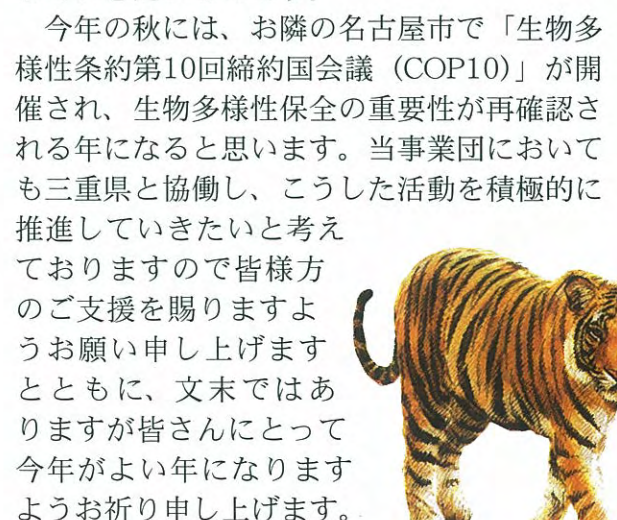 今年の秋には、お隣の名古屋市で「生物多
様性条約第10回締約国会議（COP10）」が開
催され、生物多様性保全の重要性が再確認さ
れる年になると思います。当事業団において
も三重県と協働し、こうした活動を積極的に
推進していきたいと考え
ておりますので皆様方
のご支援を賜りますよ
うお願い申し上げます
とともに、文末ではあ
りますが皆さんにとって
今年がよい年になります
ようお祈り申し上げます。